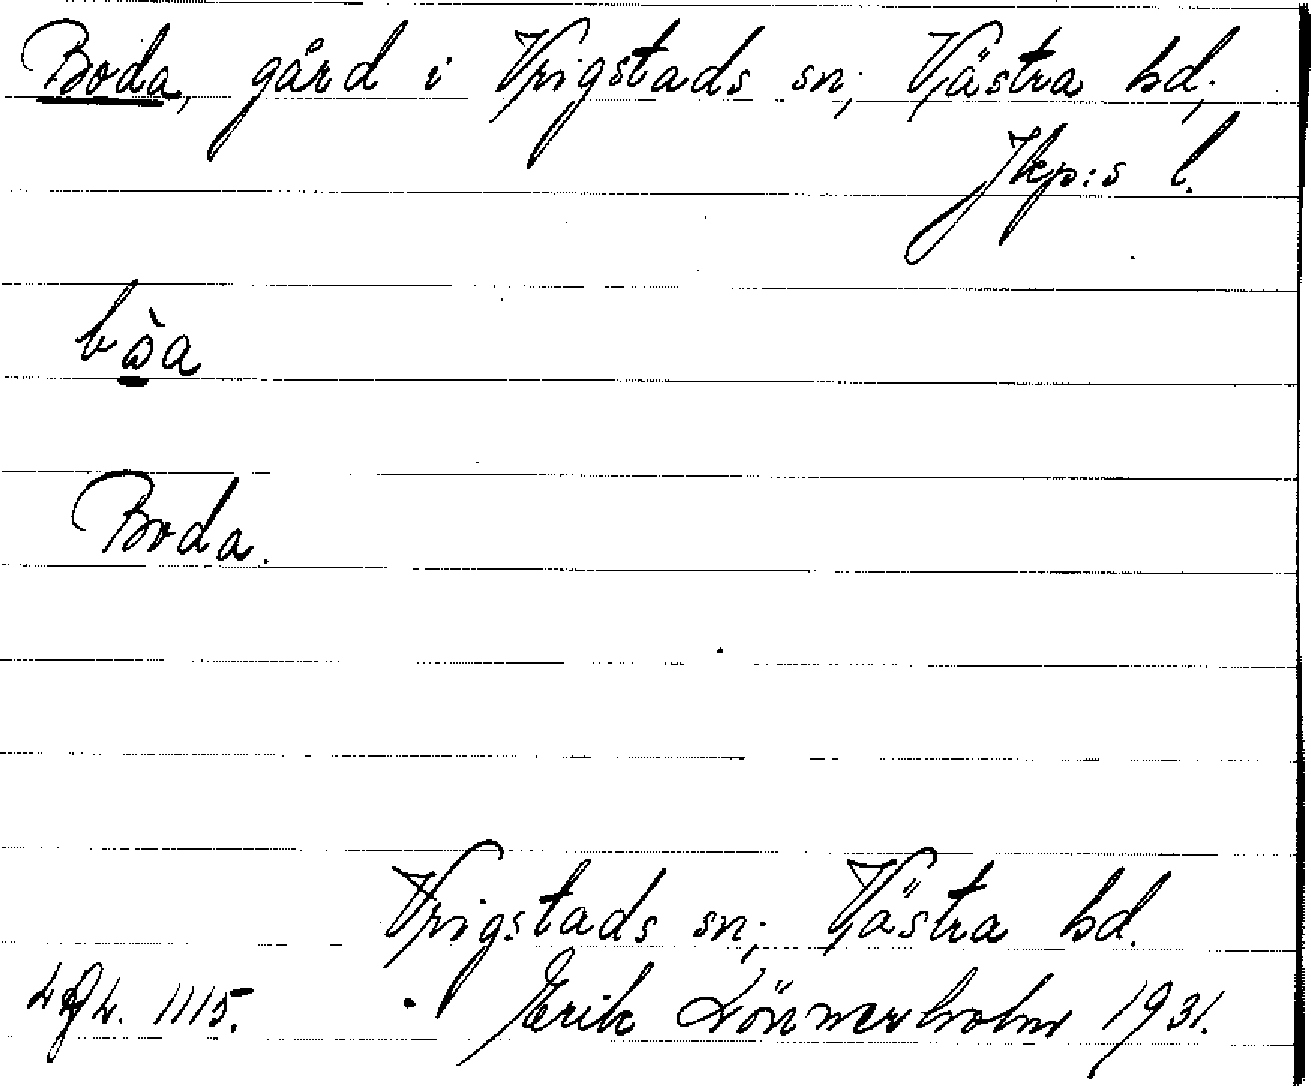 Boda, gård i Vrigstads sn, Västra hd,
Jkp:s l.
bo̠̍̀a
Boda.
Vrigstads sn, Västra hd.
1115. Erik Lönnerholm 1931.